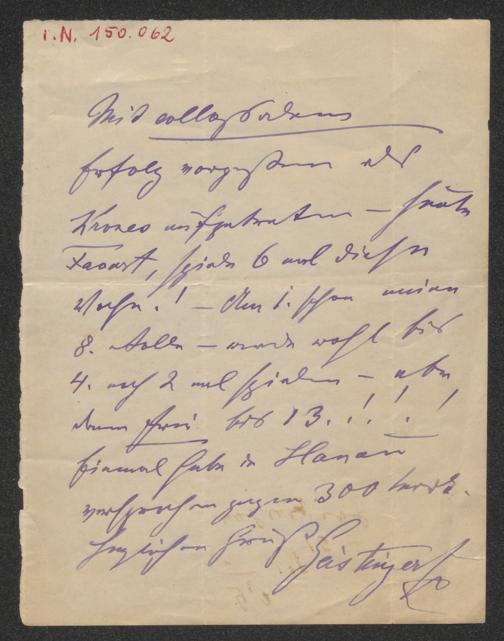 I.N. 150.062
Mit collossalem
Erfolg vorgestern als
Kroneo aufgetreten – heute
Favart, spiele 6 mal diese
Woche.! – Am 1. schon meine
8. Rolle – werde wohl bis
4. noch 2 mal spielen – aber
dann frei bis 13.!.!.!.!
Einmal habe in Hanau
versprochen gegen 300 Mark.
Herzlichen Gruß Geistinger